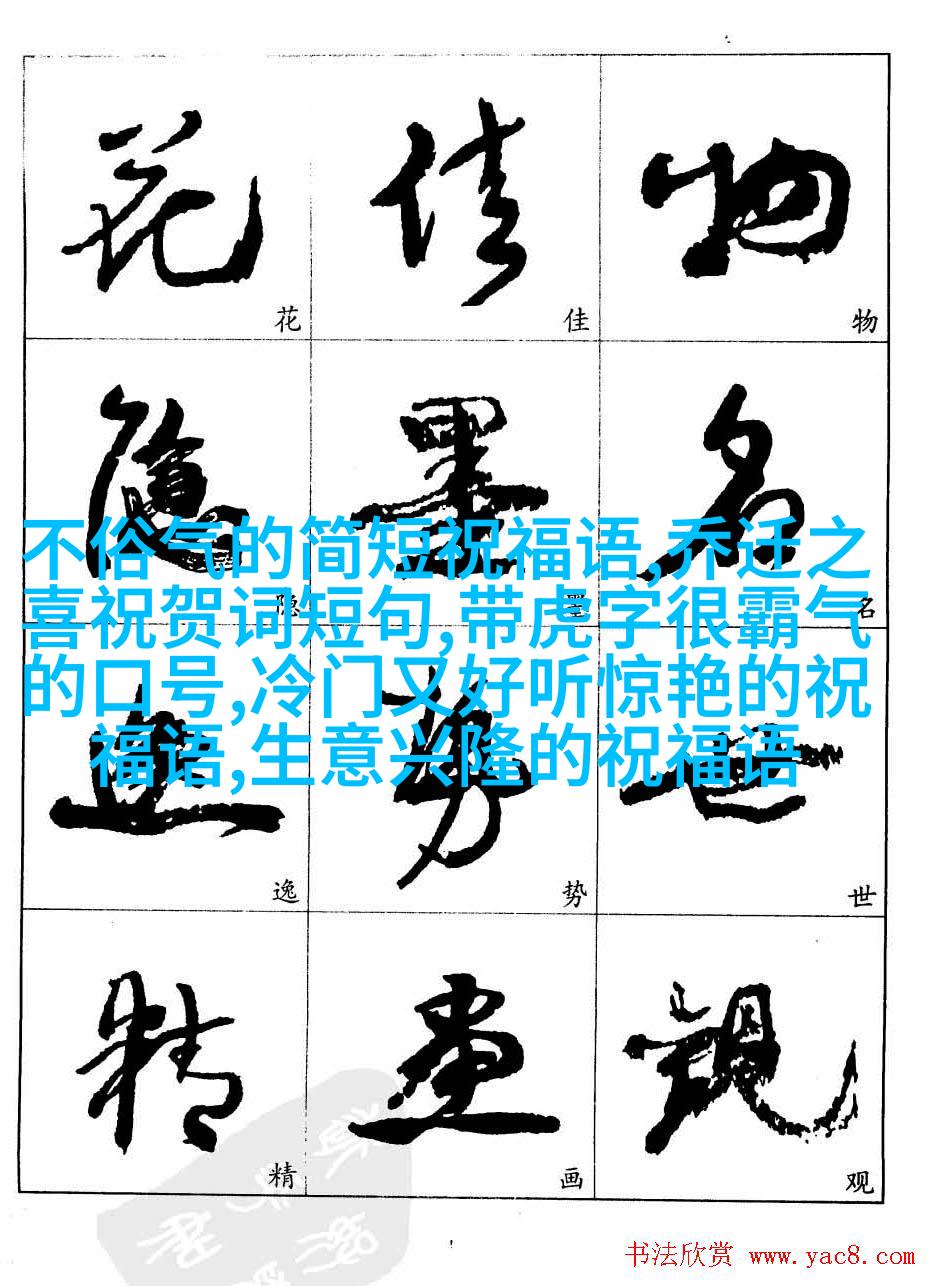 花 佳 物
花 佳 物
隐 墨 名
不俗气的简短祝福语,乔迁之
隐 墨 名
喜祝贺词短句,带虎字很霸气
的口号,冷门又好听惊艳的祝
福语,生意兴隆的祝福语
逸 势 世
逸 势 世
精 画 观
精 画 观
书法欣赏 www.yac8.com